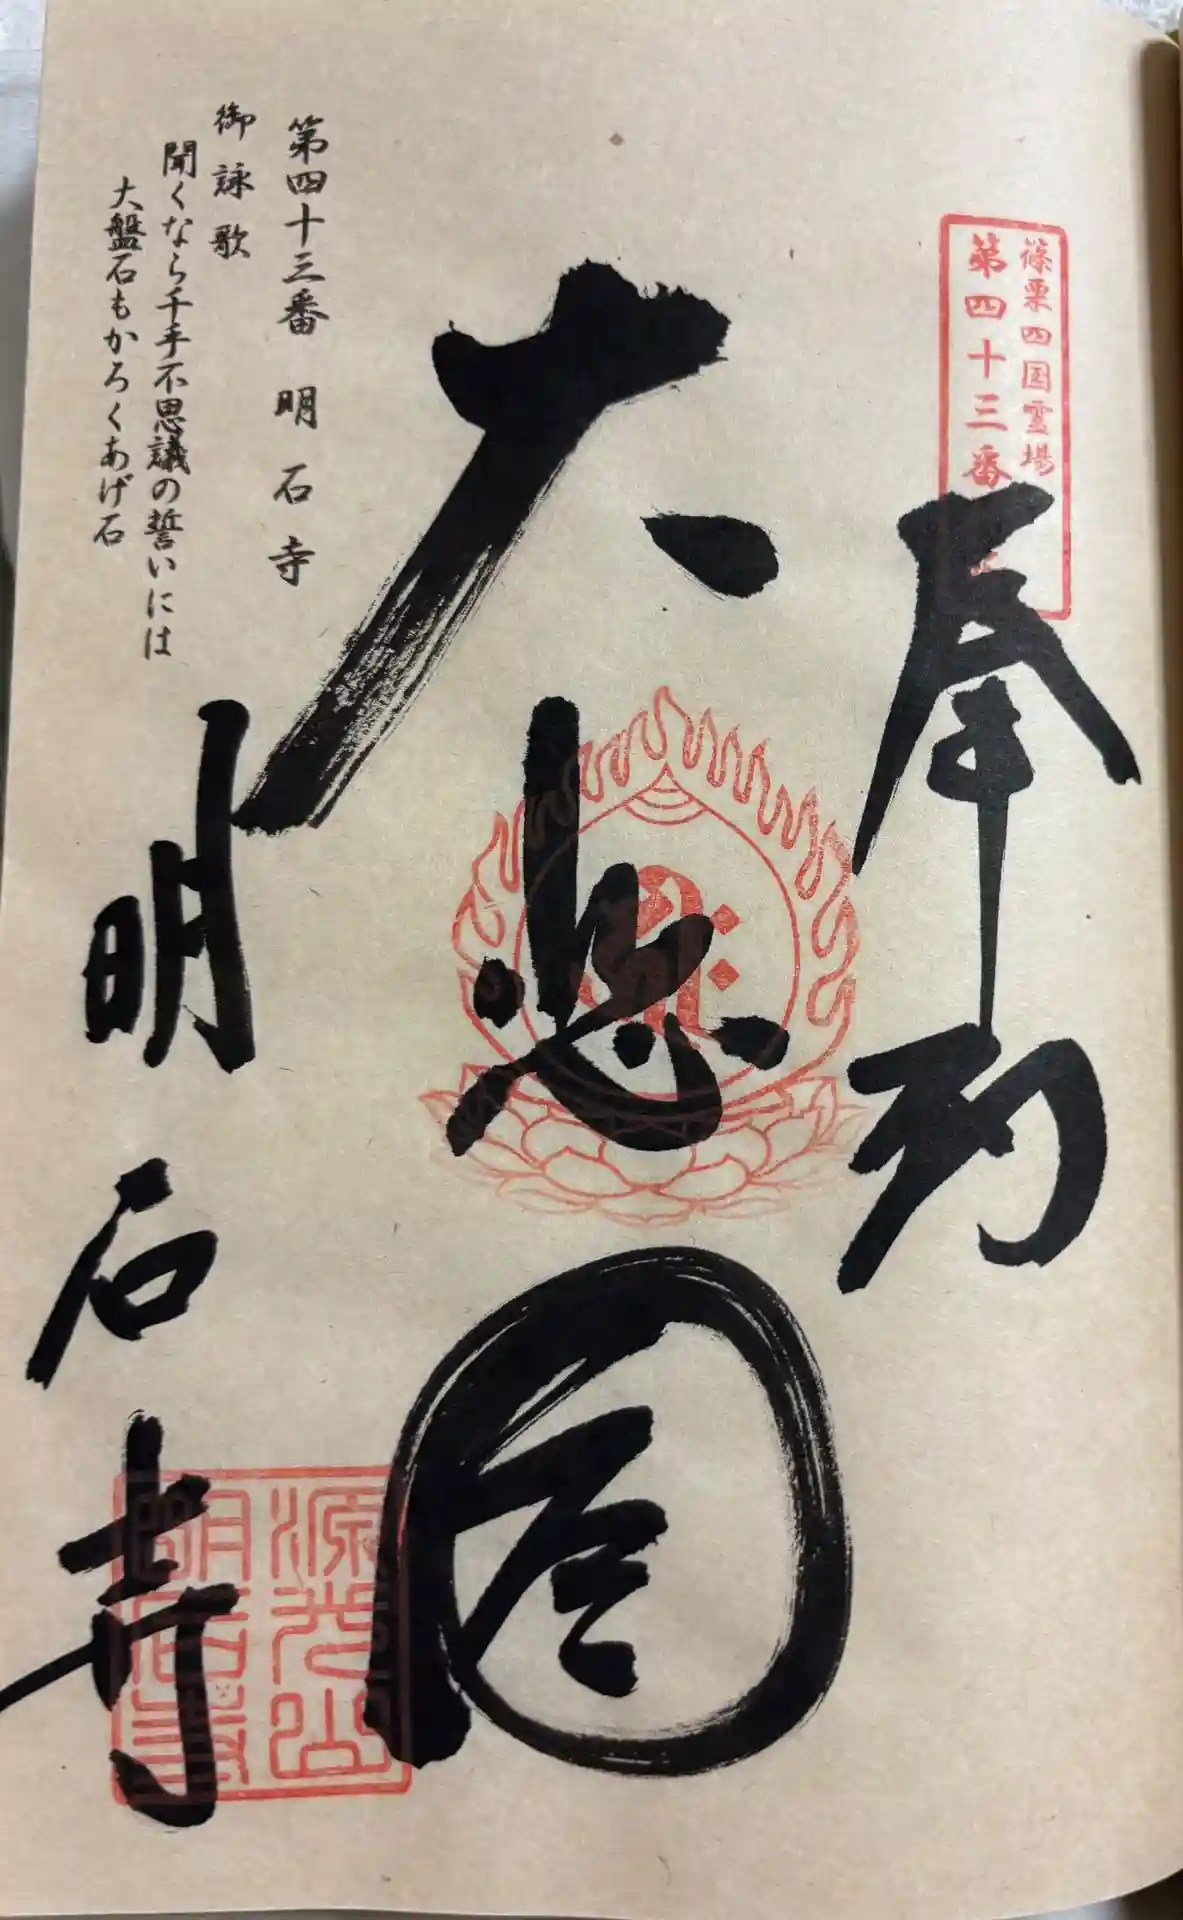 篠栗四国霊場
第四十三番
奉納
大悲閣
明石寺
源光山
明石寺
第四十三番 明石寺
御詠歌
聞くなら千手不思議の誓いには
大盤石もかろくあげ石